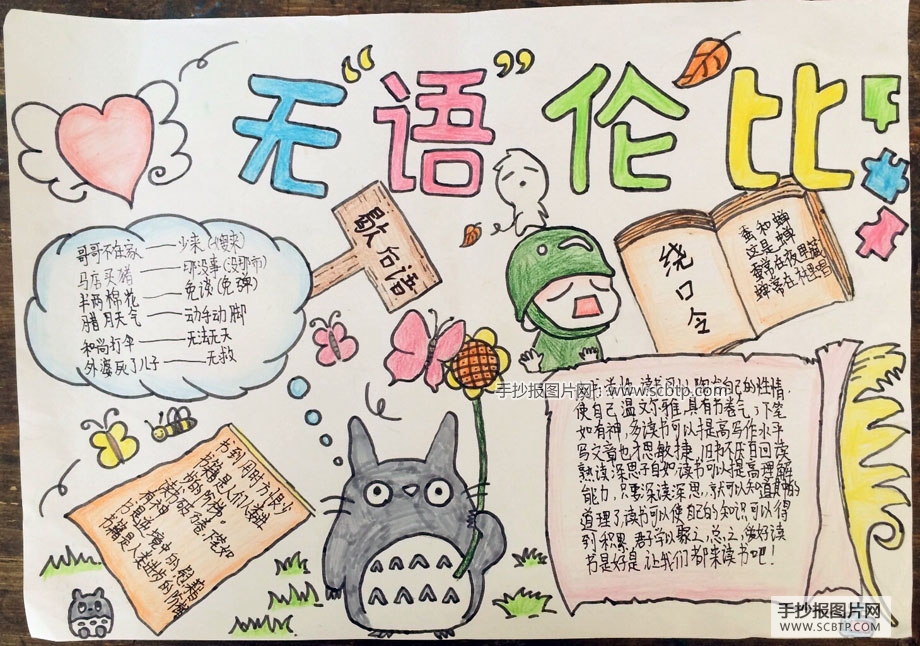 无“语”伦比
歇后语
哥哥不在家——少来(嫂来)
马店买猪——那没事(没那市)
半两棉花——免谈(免弹)
腊月天气——动手动脚
和尚打伞——无法无天
外婆死了儿子——无救
绕口令
蚕和蝉
这是蝉
蚕常在
蝉常在林里唱
书到用时方恨少
书籍是人们人类进
步的阶梯。
读书破万卷,
有神
书是逆境中的慰藉
书籍是人类进步的阶梯
手抄报图片网 www.scbtp.com
自己的性情,
使自己温文尔雅,具有书卷气,下笔
如有神,多读书可以提高写作水平
写文章也才思敏捷,旧书不厌百回读
熟读深思子自知读书可以提高理解
能力,只要深读深思,就可以知道其中的
道理了读书可以使自己的知识可以得
到积累,君子学以聚之,总之,做好读
书是好是让我们都来读书吧!
手抄报图片网
WWW.SCBTP.COM